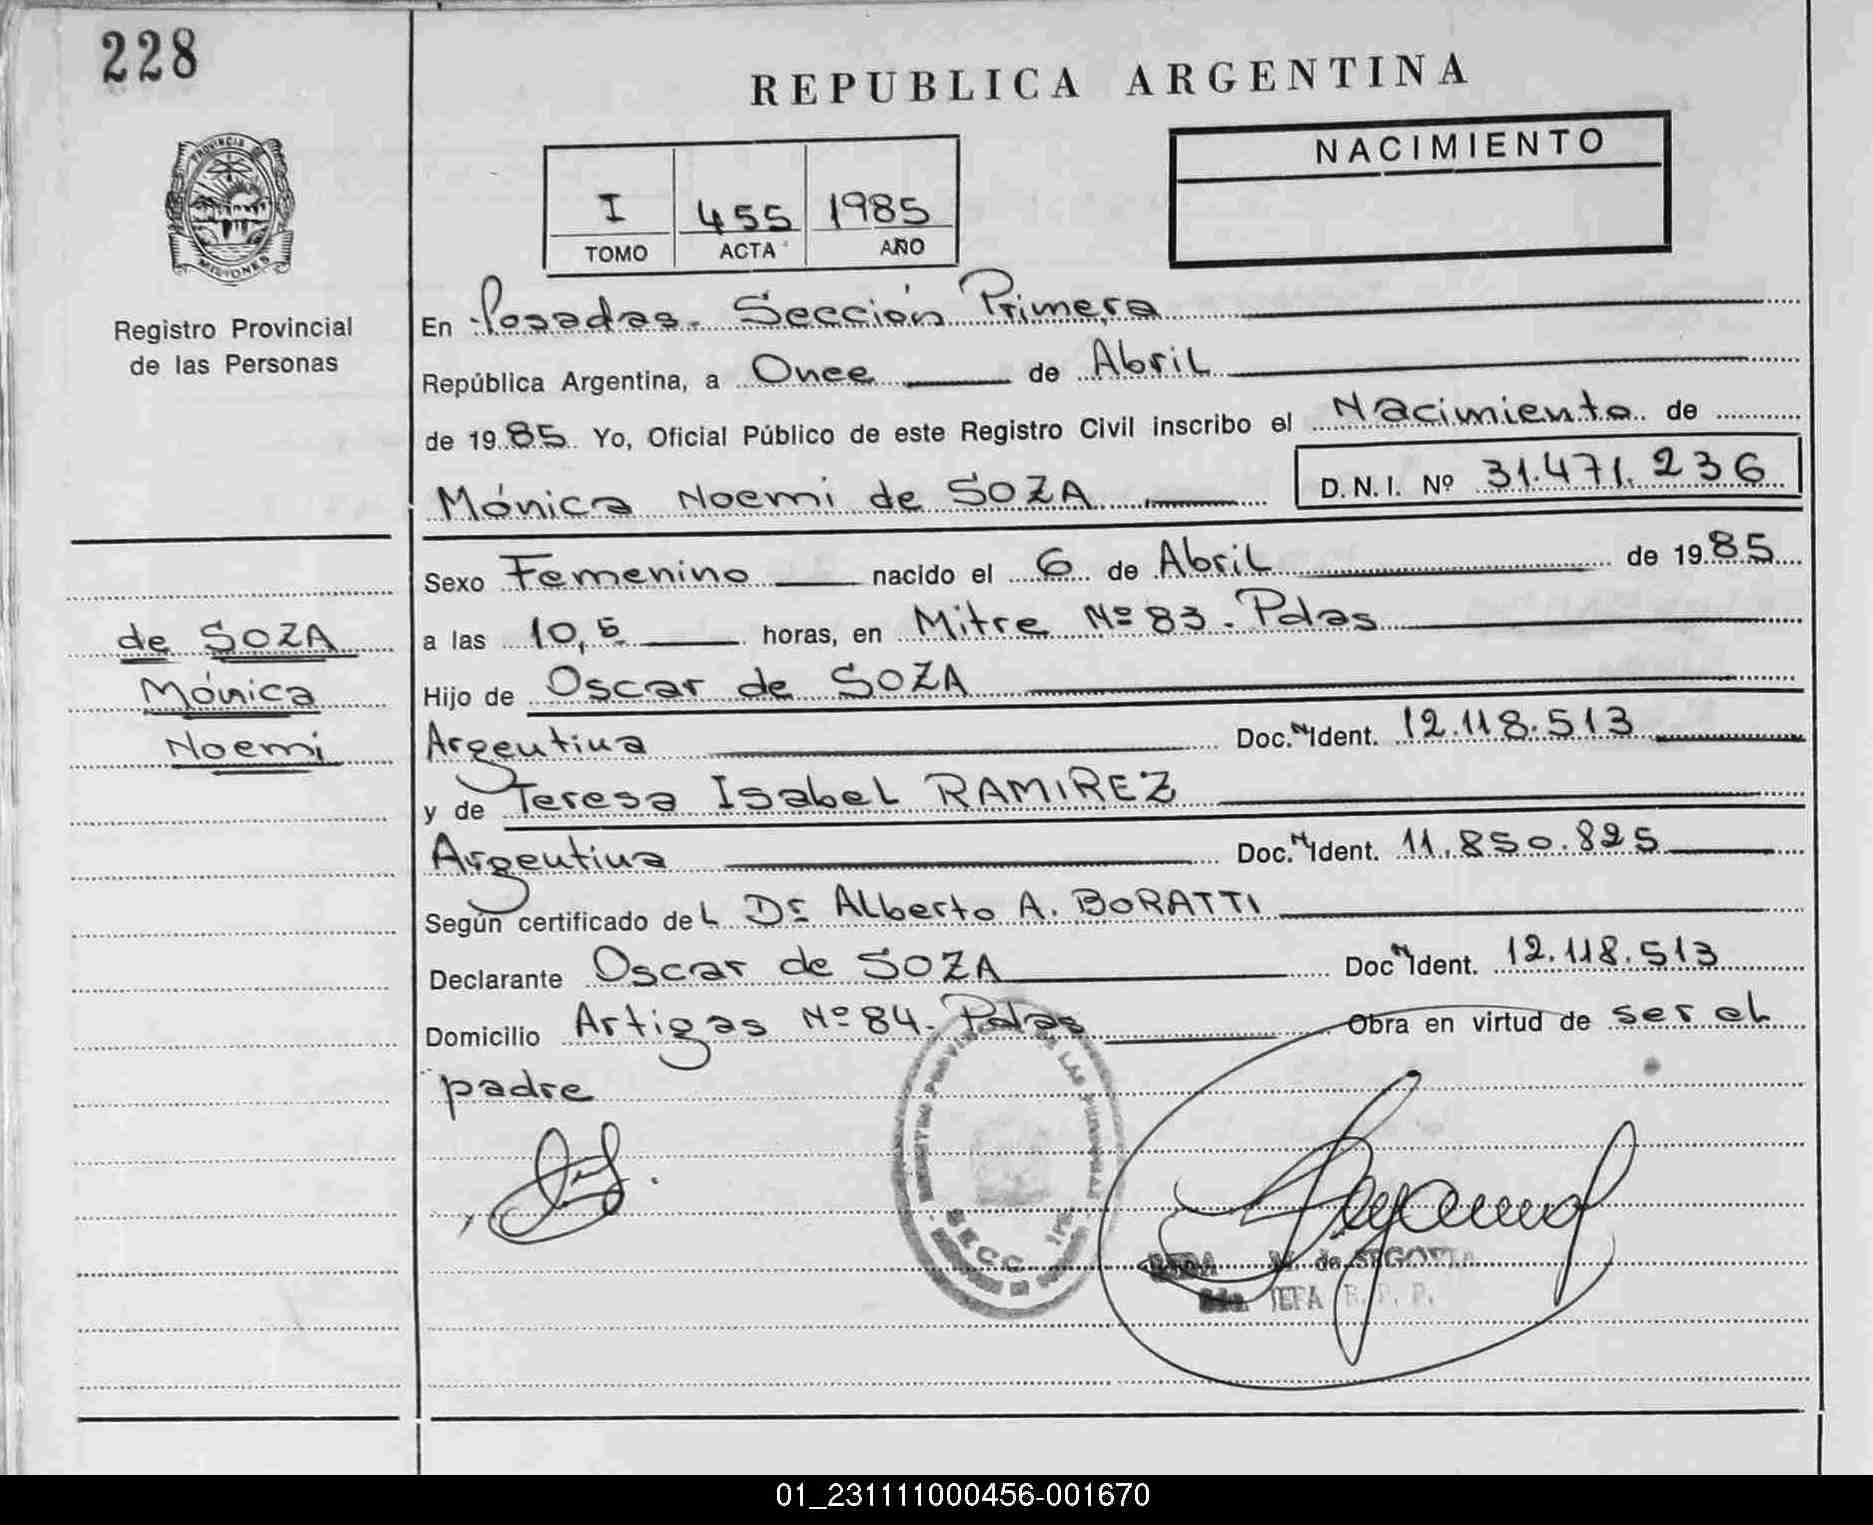 228
REPUBLICA ARGENTINA
PROVINCIA DE
MISIONES
Registro Provincial
de las Personas
I 455 1985
TOMO ACTA AÑO
NACIMIENTO
En Posadas. Sección Primera
República Argentina, a Once de Abril
de 1985 Yo, Oficial Público de este Registro Civil inscribo el Nacimiento de
Mónica Noemi de SOZA D.N.I. Nº 31.471.236
Sexo Femenino nacido el 6 de Abril de 1985
de SOZA
Mónica
Noemi
a las 10,5 horas, en Mitre Nº 83. Pdas
Hijo de Oscar de SOZA
Argentina Doc. N Ident. 12.118.513
y de Teresa Isabel RAMIREZ
Argentina Doc. N Ident. 11.850.825
Según certificado del Dr Alberto A. BORATTI
Declarante Oscar de SOZA Doc N Ident. 12.118.513
Domicilio Artigas Nº 84. Pdas Obra en virtud de ser el
padre
DE LAS PERSONAS
SECC. 1ra.
M. de SEGOVIA
JEFA R. P. P.
01_231111000456-001670